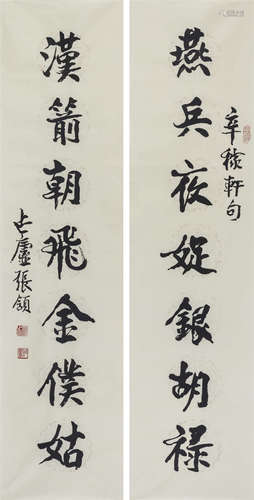 燕兵夜娖銀胡䩮
辛稼軒句
漢箭朝飛金僕姑
占虛張頷